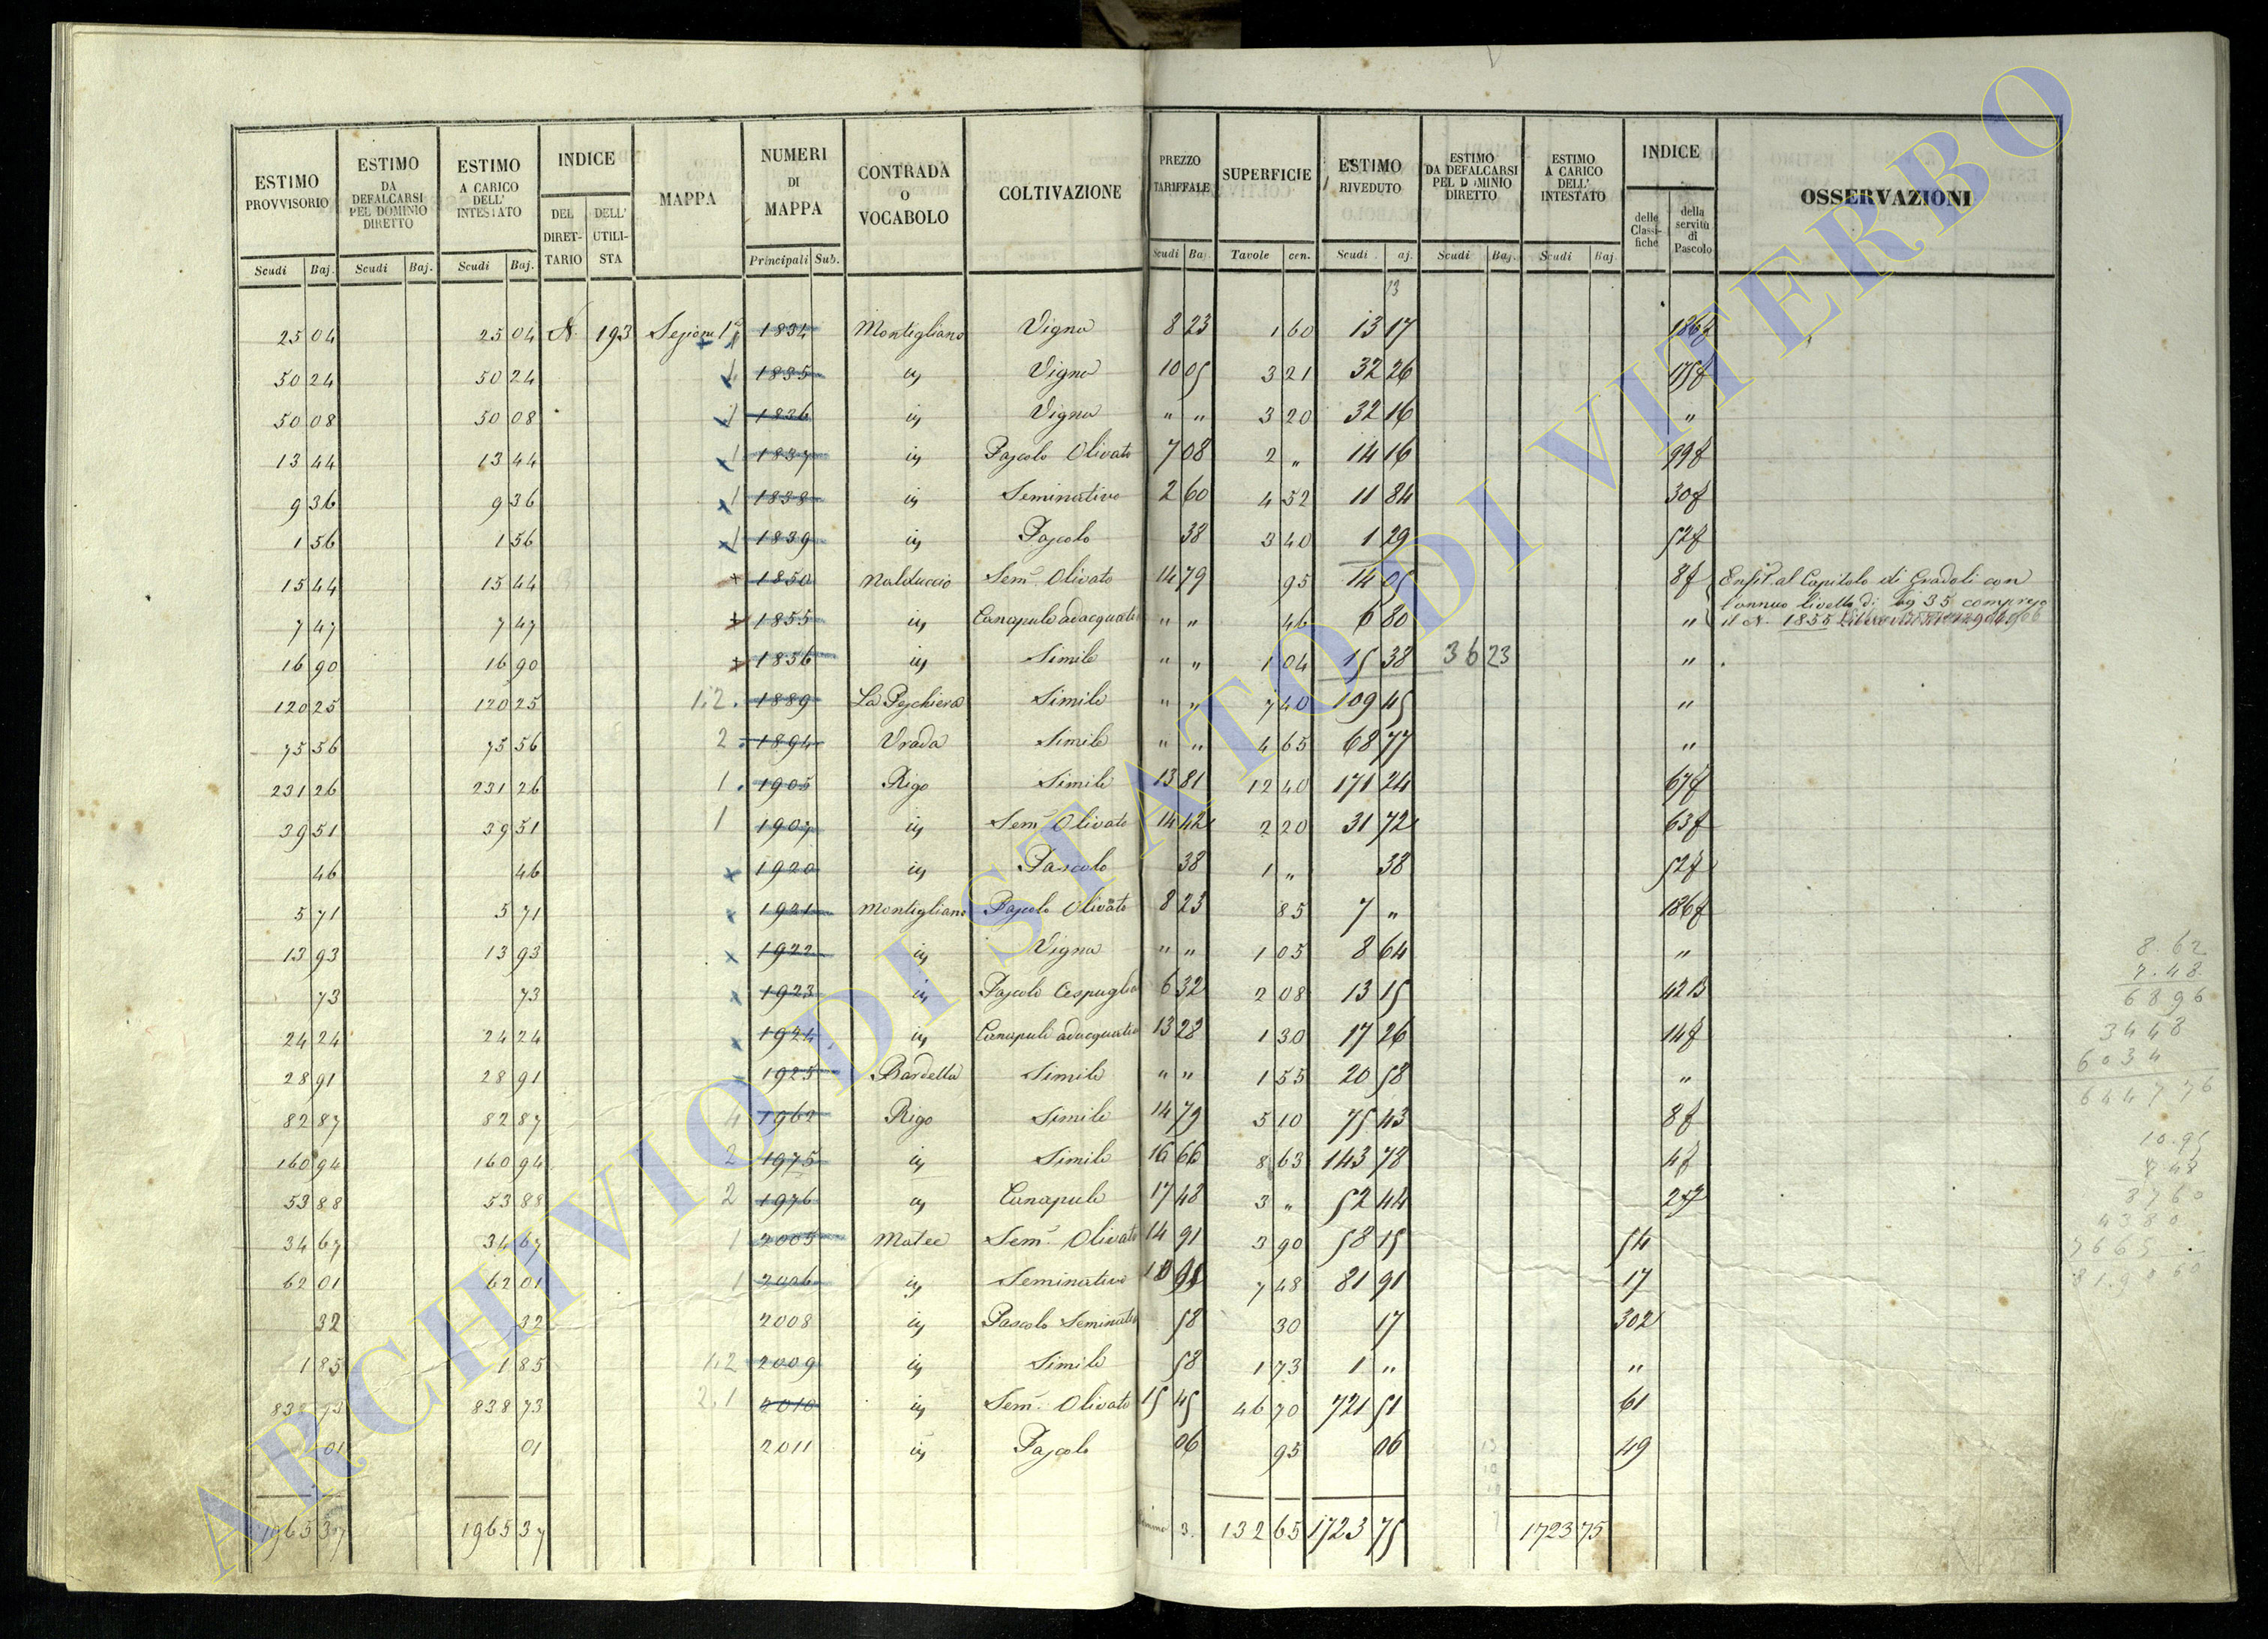 ESTIMO PROVVISORIO | ESTIMO DA DEFALCARSI PEL DOMINIO DIRETTO | ESTIMO A CARICO DELL' INTESTATO | INDICE | MAPPA | NUMERI DI MAPPA | CONTRADA O VOCABOLO | COLTIVAZIONE | PREZZO TARIFFALE | SUPERFICIE | ESTIMO RIVEDUTO | ESTIMO DA DEFALCARSI PEL DOMINIO DIRETTO | ESTIMO A CARICO DELL' INTESTATO | INDICE | OSSERVAZIONI
DEL DIRETTARIO | DELL' UTILISTA | delle Classifiche | della servitù di Pascolo
Scudi | Baj. | Scudi | Baj. | Scudi | Baj. | Principali | Sub. | Scudi | Ba | Tavole | cen. | Scudi | aj. | Scudi | Baj. | Scudi | Baj
13
25 04 | 25 04 | N. | 193 | Sezione 1ª | 1834 | Montigliano | Vigna | 8 23 | 1 60 | 13 17 | 186f
50 24 | 50 24 | 1835 | in | Vigna | 10 05 | 3 21 | 32 26 | 175f
50 08 | 50 08 | 1836 | in | Vigna | " " | 3 20 | 32 16 | "
13 44 | 13 44 | 1837 | in | Pascolo Olivato | 7 08 | 2 " | 14 16 | 99f
9 36 | 9 36 | 1838 | in | Seminativo | 2 60 | 4 52 | 11 84 | 30f
1 56 | 1 56 | 1839 | in | Pascolo | 38 | 3 40 | 1 29 | 52f
15 44 | 15 44 | 1850 | Nalduccio | Sem. Olivato | 14 79 | 95 | 14 05 | 8f | Enfit. al Capitolo di Gradoli con
7 47 | 7 47 | 1855 | in | Canapule adacquato | " " | 46 | 6 80 | " | l'annuo livello di bj 35 compreso
il N. 1855
16 90 | 16 90 | 1856 | in | Simile | " " | 1 04 | 15 38 | 36 23 | "
120 25 | 120 25 | 1.2. | 1889 | La Peschiera | Simile | " " | 7 40 | 109 45 | "
75 56 | 75 56 | 2 | 1894 | Vrada | Simile | " " | 4 65 | 68 77 | "
231 26 | 231 26 | 1 | 1905 | Rigo | Simile | 13 81 | 12 40 | 171 24 | 67f
39 51 | 39 51 | 1 | 1907 | in | Sem. Olivato | 14 42 | 2 20 | 31 72 | 63f
46 | 46 | 1920 | in | Pascolo | 38 | 1 " | 38 | 52f
5 71 | 5 71 | 1921 | Montigliano | Pascolo Olivato | 8 23 | 85 | 7 " | 186f
13 93 | 13 93 | 1922 | in | Vigna | " " | 1 05 | 8 64 | "
73 | 73 | 1923 | in | Pascolo Cespuglia | 6 32 | 2 08 | 13 15 | 42B
24 24 | 24 24 | 1924 | in | Canapule adacquato | 13 28 | 1 30 | 17 26 | 14f
28 91 | 28 91 | 1925 | Bardella | Simile | " " | 1 55 | 20 58 | "
82 87 | 82 87 | 4 | 1962 | Rigo | Simile | 14 79 | 5 10 | 75 43 | 8f
160 94 | 160 94 | 2 | 1975 | in | Simile | 16 66 | 8 63 | 143 78 | 4f
53 88 | 53 88 | 2 | 1976 | in | Canapule | 17 48 | 3 " | 52 44
34 67 | 34 67 | 1 | 2005 | Matee | Sem. Olivato | 14 91 | 3 90 | 58 15 | 54
62 01 | 62 01 | 1 | 2006 | in | Seminativo | 10 95 | 7 48 | 81 91 | 17
32 | 32 | 2008 | in | Pascolo Seminativo | 58 | 30 | 17 | 302
1 85 | 1 85 | 1.2 | 2009 | in | Simile | 58 | 1 73 | 1 " | "
838 73 | 838 73 | 2.1 | 2010 | in | Sem. Olivato | 15 45 | 46 70 | 721 51 | 61
01 | 01 | 2011 | in | Pascolo | 06 | 95 | 06 | 49
1965 37 | 1965 37 | 3. | 132 65 | 1723 75 | 1723 75
8.62
7.48
6896
3448
6034
644776
10.95
7 48
8760
4380
7665
81.9060
ARCHIVIO DI STATO DI VITERBO